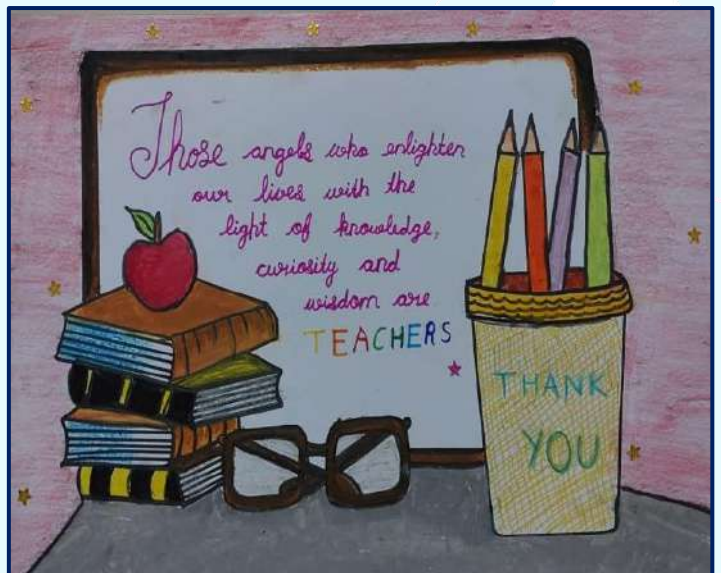 Those angels who enlighten
our lives with the
light of knowledge,
curiosity and
wisdom are
TEACHERS
THANK
YOU